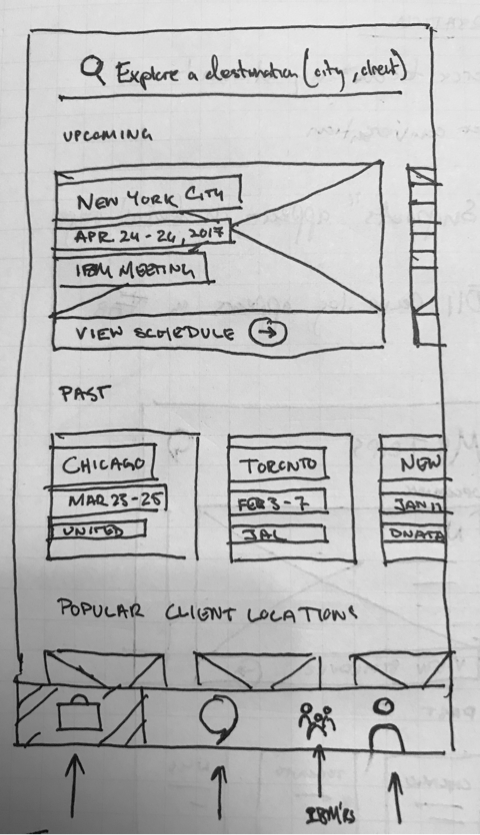 Explore a destination (city, client)
UPCOMING
NEW YORK CITY
APR 24-26, 2017
IBM MEETING
VIEW SCHEDULE
PAST
CHICAGO
MAR 23-25
UNITED
TORONTO
FEB 3-7
JAL
NEW
JAN 11
DNATA
POPULAR CLIENT LOCATIONS
IBM'RS